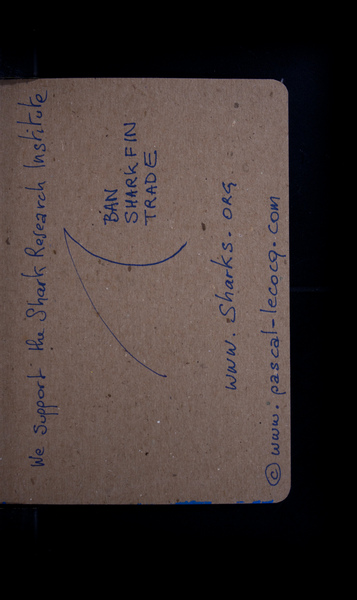 We Support the Shark Research Institute
BAN
SHARKFIN
TRADE
www.Sharks.ORG
© www.pascal-lecocq.com